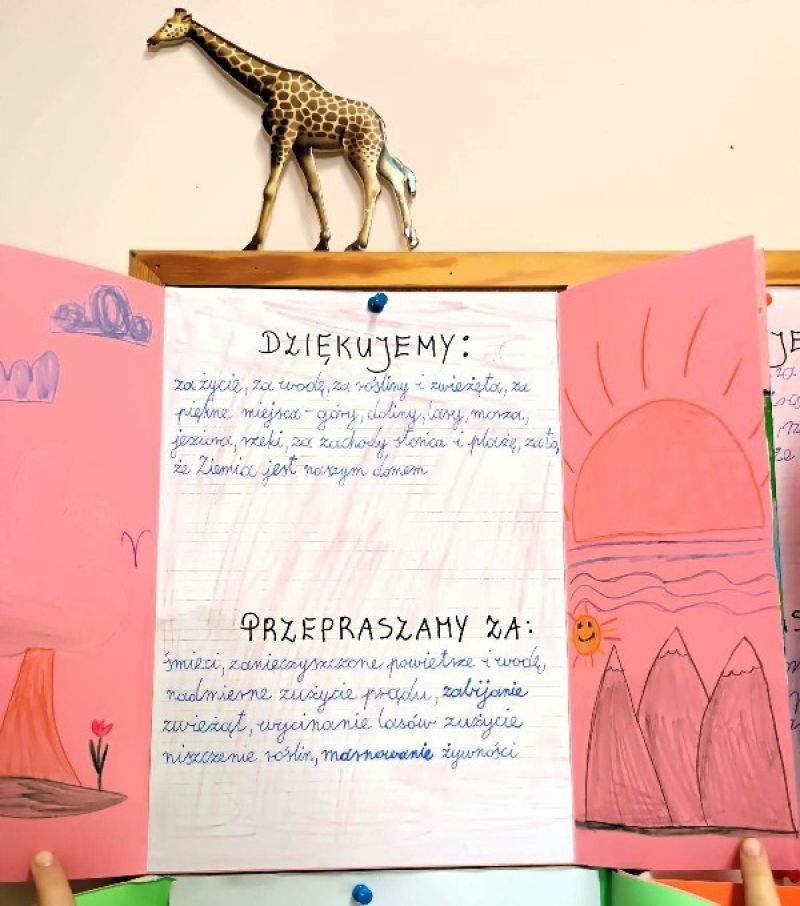 DZIĘKUJEMY:
za życie, za wodę, za rośliny i zwierzęta, za
piękne miejsca - góry, doliny, lasy, morza,
jeziora, rzeki, za zachody słońca i plażę, za to,
że Ziemia jest naszym domem
PRZEPRASZAMY ZA:
śmieci, zanieczyszczone powietrze i wodę,
nadmierne zużycie prądu, zabijanie
zwierząt, wycinanie lasów zużycie
niszczenie roślin, marnowanie żywności